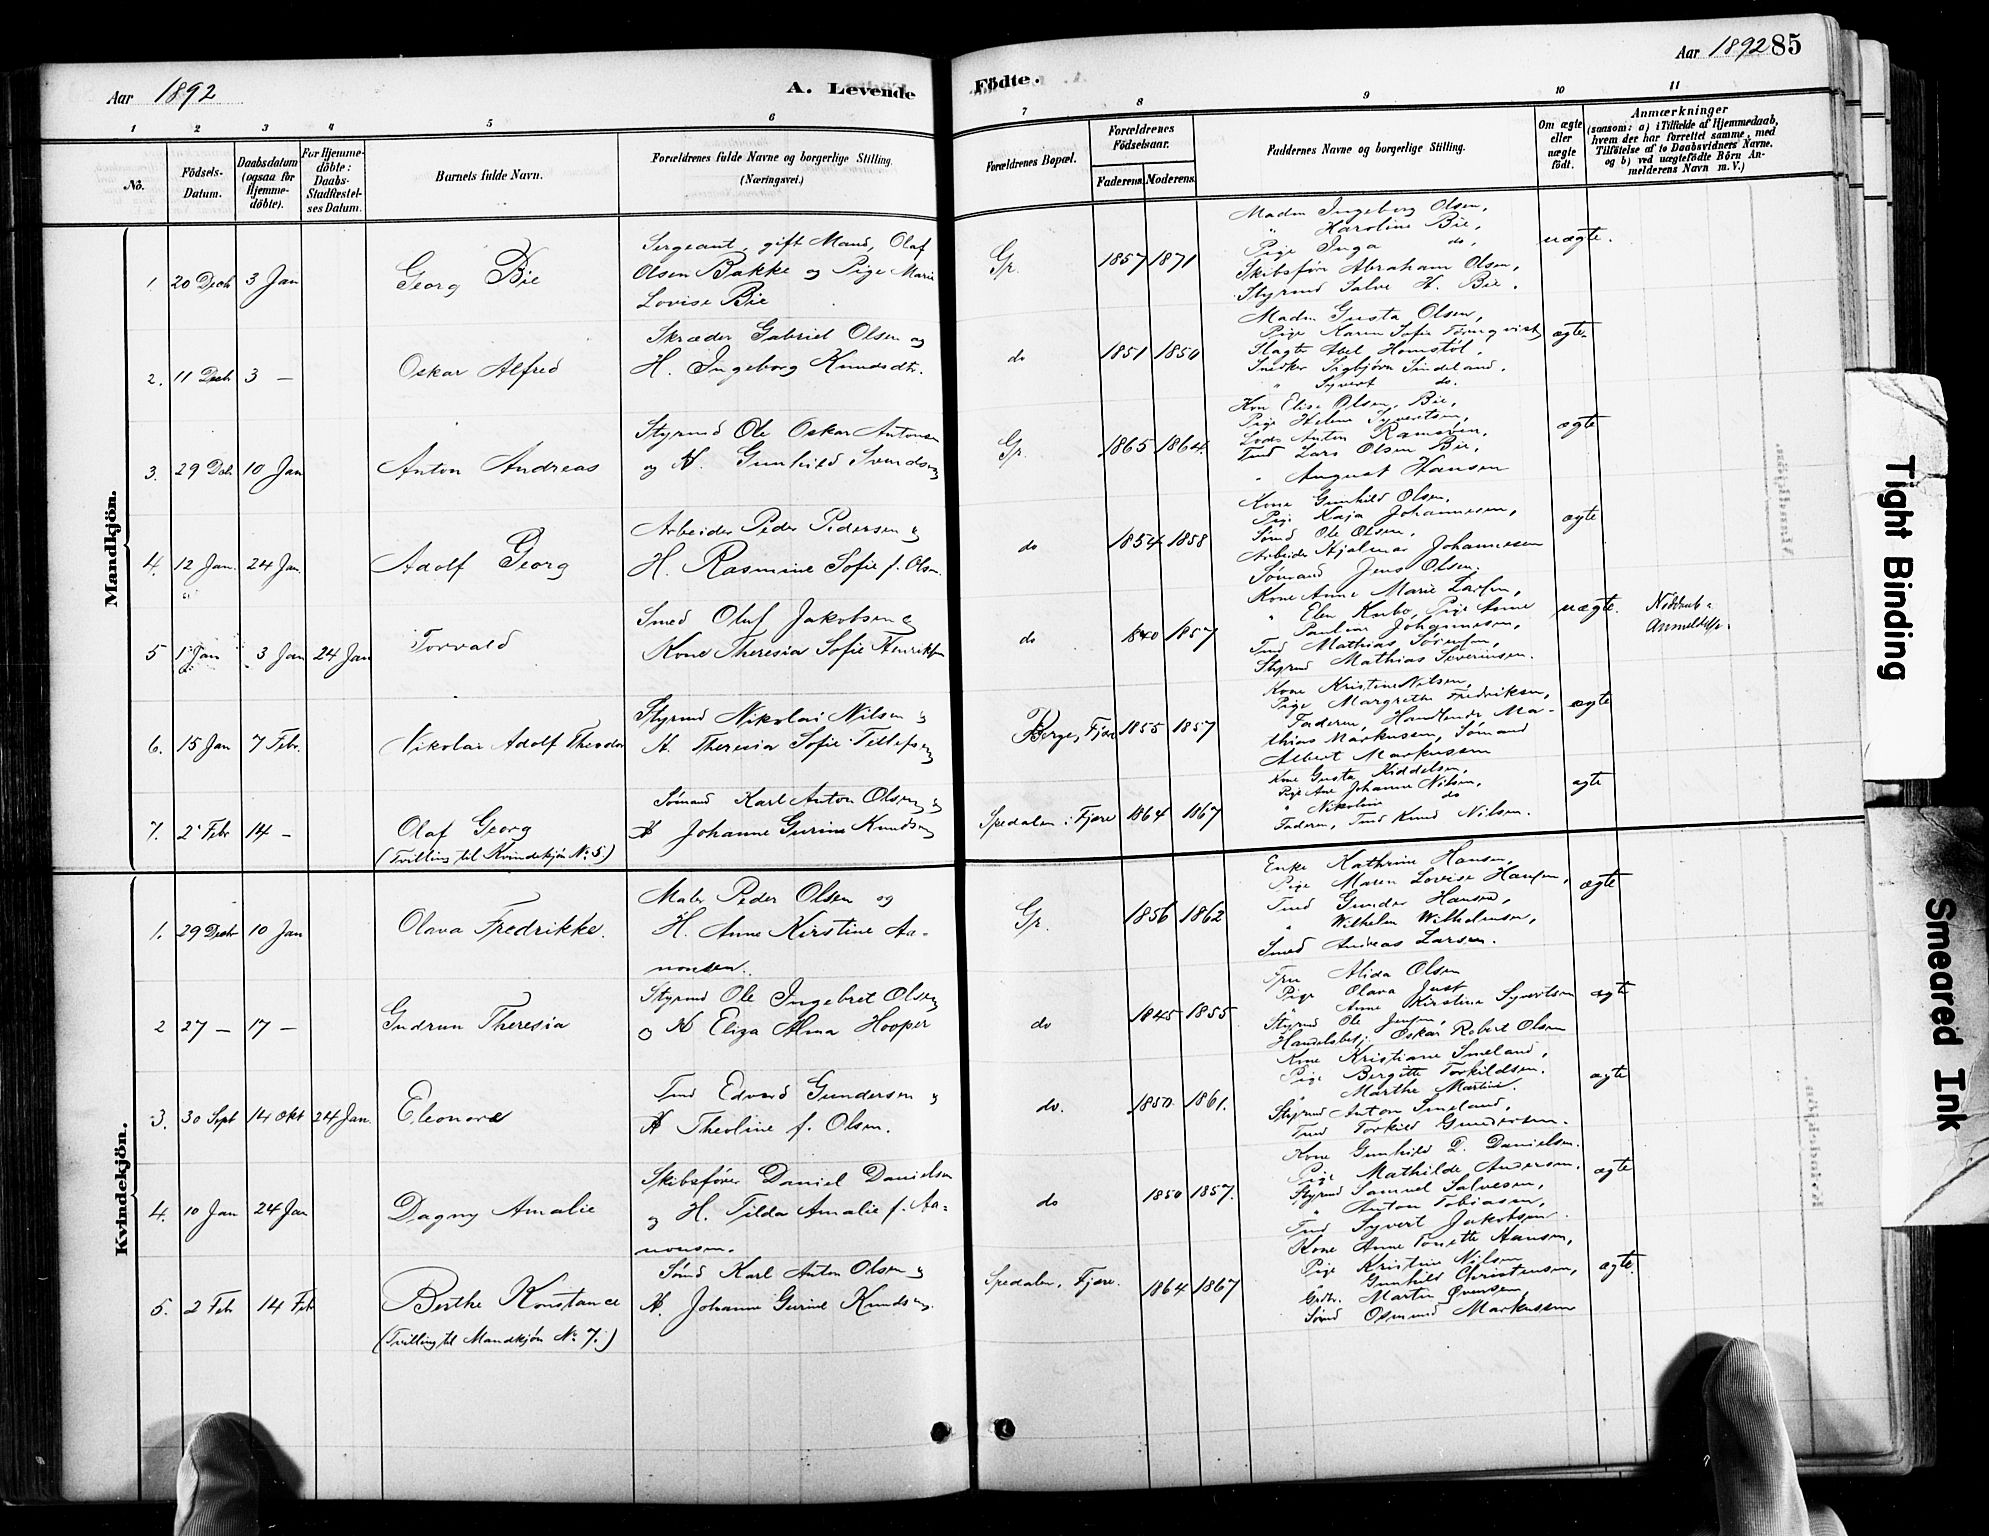 Aar 1892
A. Levende
Fødte.
Aar 1892 85
1 2 3 4 5 6 7 8 9 10 11
No.
Fødsels-
Datum.
Daabsdatum
(ogsaa for
Hjemme-
døbte).
For Hjemme-
døbte:
Daabs-
Stadfæstel-
ses Datum.
Barnets fulde Navn.
Forældrenes fulde Navne og borgerlige Stilling.
(Næringsvei.)
Forældrenes Bopæl.
Forældrenes
Fødselsaar.
Faderens. Moderens.
Faddernes Navne og borgerlige Stilling.
Om ægte
eller
uægte
født.
Anmærkninger
(saasom: a) i Tilfælde af Hjemmedaab,
hvem der har forrettet samme, med
Tilføielse af to Daabsvidners Navne,
og b) ved uægtefødte Børn An-
melderens Navn m. V.)
Mandkjøn.
1. 20 Decb 3 Jan
Georg Bie
Sergeant, gift Mand, Olaf
Olsen Bakke og Pige Marie
Lovise Bie
Gr. 1857 1871
Madm Ingeborg Olsen,
" Karoline Bie,
Pige Inga do,
Skibsfør Abraham Olsen,
Styrmd Salve H. Bie.
uægte.
2. 11 Decb 3 —
Oskar Alfred
Skræder Gabriel Olsen og
H. Ingeborg Knudsdtr.
do 1851 1850
Madm Gusta Olsen,
Pige Karen Sofie Törnqvist,
Slagter Abel Homstøl,
Snedker Sigbjørn Sindeland,
" Syvert do.
ægte.
3. 29 Dcb. 10 Jan
Anton Andreas
Styrmd Ole Oskar Antonsen
og H. Gunhild Svendsen
Gr. 1865 1864.
Kon Elise Olsen, Bie,
Pige Helene Syvertsen,
Lods Anton Ramsøen,
Tmd Lars Olsen Bie,
" August Hansen
ægte
4. 12 Jan. 24 Jan.
Adolf Georg
Arbeider Peder Pedersen og
H. Rasmine Sofie f. Olsn.
do 1854 1858
Kone Gunhild Olsen,
Pige Kaja Johannesen,
Sømd Ole Olsen,
Arbeider Hjalmar Johannesen
Sømand Jens Olsen.
ægte
5 1 Jan 3 Jan 24 Jan
Torvald
Smed Oluf Jakobsen og
Kone Theresia Sofie Henriksen
do 1840 1857
Kone Anne Marie Larsen,
" Elen Knibe, Pige Anne
Pauline Johannesen,
Tmd Mathias Sørensen,
Styrmd Mathias Severinsen.
uægte.
6. 15 Jan 7 Febr.
Nikolai Adolf Theodor
Styrmd Nikolai Nilsen og
H. Theresia Sofie Tellefsen
Berge, Fjære 1855 1857
Kone Kristine Nilsen,
Pige Margrethe Fredriksen,
Faderen, Handlende Ma-
thias Markussen, Sømand
Albert Markussen
ægte
7. 2 Febr 14 —
Olaf Georg
(Tvilling til Kvindekjøn No. 5)
Sømand Karl Anton Olsen og
H Johanne Gurine Knudsen
Spedalen i Fjære 1864 1867
Kone Gusta Kiddelsen,
Pige Ane Johanne Nilsen,
" Nikoline do
Faderen, Tmd Knud Nilsen.
ægte
Kvindekjøn.
1. 29 Decbr 10 Jan
Olava Fredrikke.
Maler Peder Olsen og
H. Anne Kirstine Aa-
nonsen.
Gr. 1856 1862
Enke Kathrine Hansen,
Pige Maren Lovise Hansen,
Tmd Gunder Hansen,
" Wilhelm Wilhelmsen,
Smed Andreas Larsen.
ægte
2 27 — 17 —
Gudrun Theresia
Styrmd Ole Ingebret Olsen
og H Eliza Alma Hooper
do 1845 1855
Fru Alida Olsen
Pige Olava Just
" Anne Kirstine Syvertsen
Styrmd Ole Jensen,
Handelsbetj. Oskar Robert Olsen
ægte
3. 30 Sept 14 Okt 24 Jan.
Eleonore
Tmd Edvard Gundersen og
H Theoline f. Olsen.
do. 1850 1861.
Kone Kristiane Smeland,
Pige Bergitte Torkildsen.
" Marthe Martine.
Styrmd Anton Smeland,
Tmd Torkild Gundersen.
ægte
4. 10 Jan 24 Jan
Dagny Amalie
Skibsfører Daniel Danielsen
og H. Tilda Amalie f. Aa-
nonsen.
do 1850 1857.
Kone Gunhild D. Danielsen.
Pige Mathilde Andersen.
Styrmd Samuel Salvesen,
" Anton Tobiasen,
Tmd Syvert Jakobsen.
ægte
5. 2 Feb 14 Feb
Berthe Konstance
(Tvilling til Mandkjøn No 7.)
Sømd Karl Anton Olsen og
H. Johanne Gurine Knudsen.
Spedalen, Fjære. 1864 1867
Kone Anne Tonette Hansen,
Pige Kristine Nilsen
" Gunhild Christensen,
Grdbr. Martin Evensen
Sømd Osmund Markussen
ægte.
Tight Binding
Smeared Ink